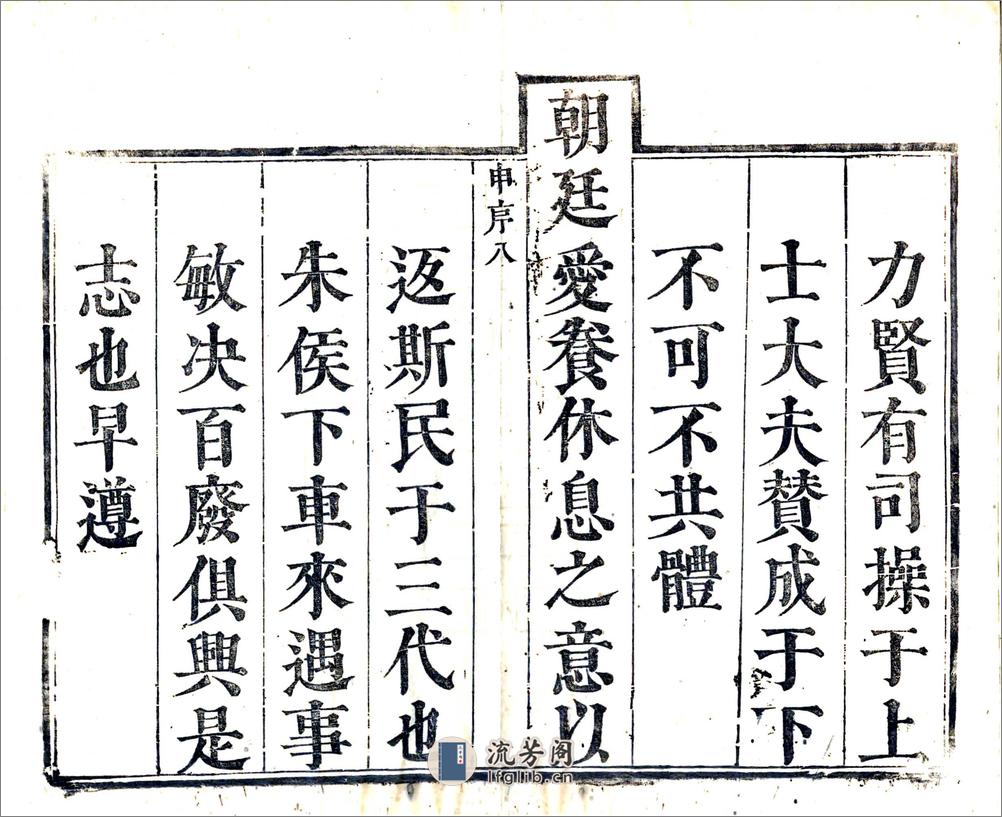 力賢有司操于上
士大夫賛成于下
不可不共體
朝廷愛養休息之意以
申序八
返斯民于三代也
朱侯下車來遇事
敏决百廢俱興是
志也早遵
流芳阁
lfglib.cn